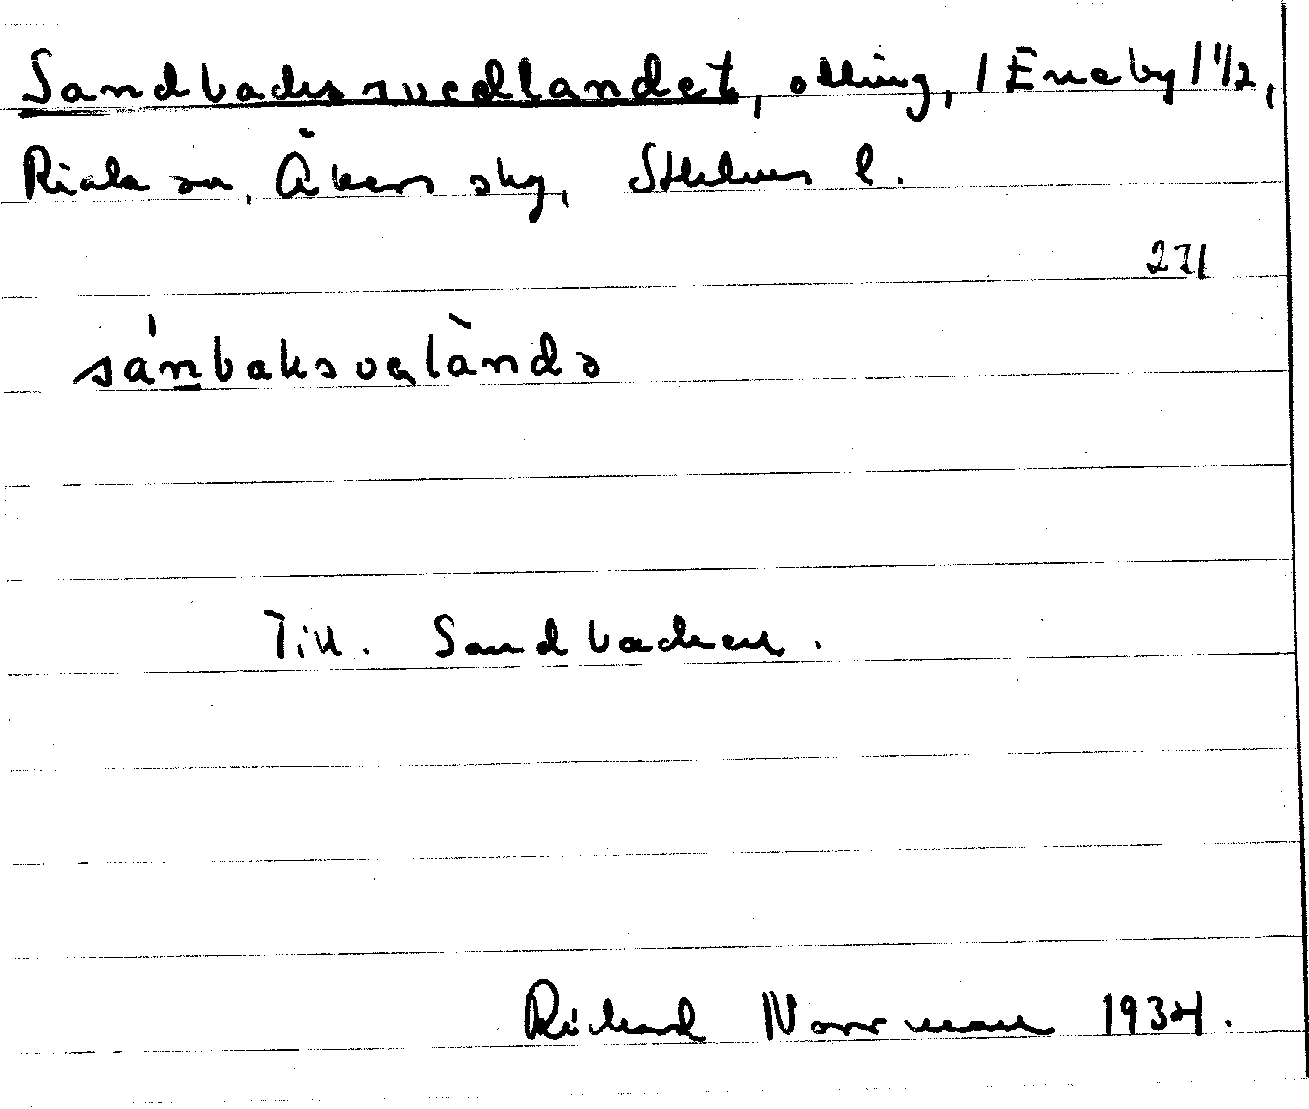 Sandbackssvedlandet, odling, 1 Eneby 1 1/2,
Riala sn, Åkers skg, Sthlms l.
271
Till. Sandbacken.
Richard Norrman 1934.